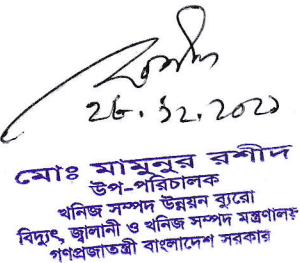 রশীদ
২৮.১২.২০২১
মোঃ মামুনুর রশীদ
উপ-পরিচালক
খনিজ সম্পদ উন্নয়ন ব্যুরো
বিদ্যুৎ, জ্বালানী ও খনিজ সম্পদ মন্ত্রণালয়
গণপ্রজাতন্ত্রী বাংলাদেশ সরকার